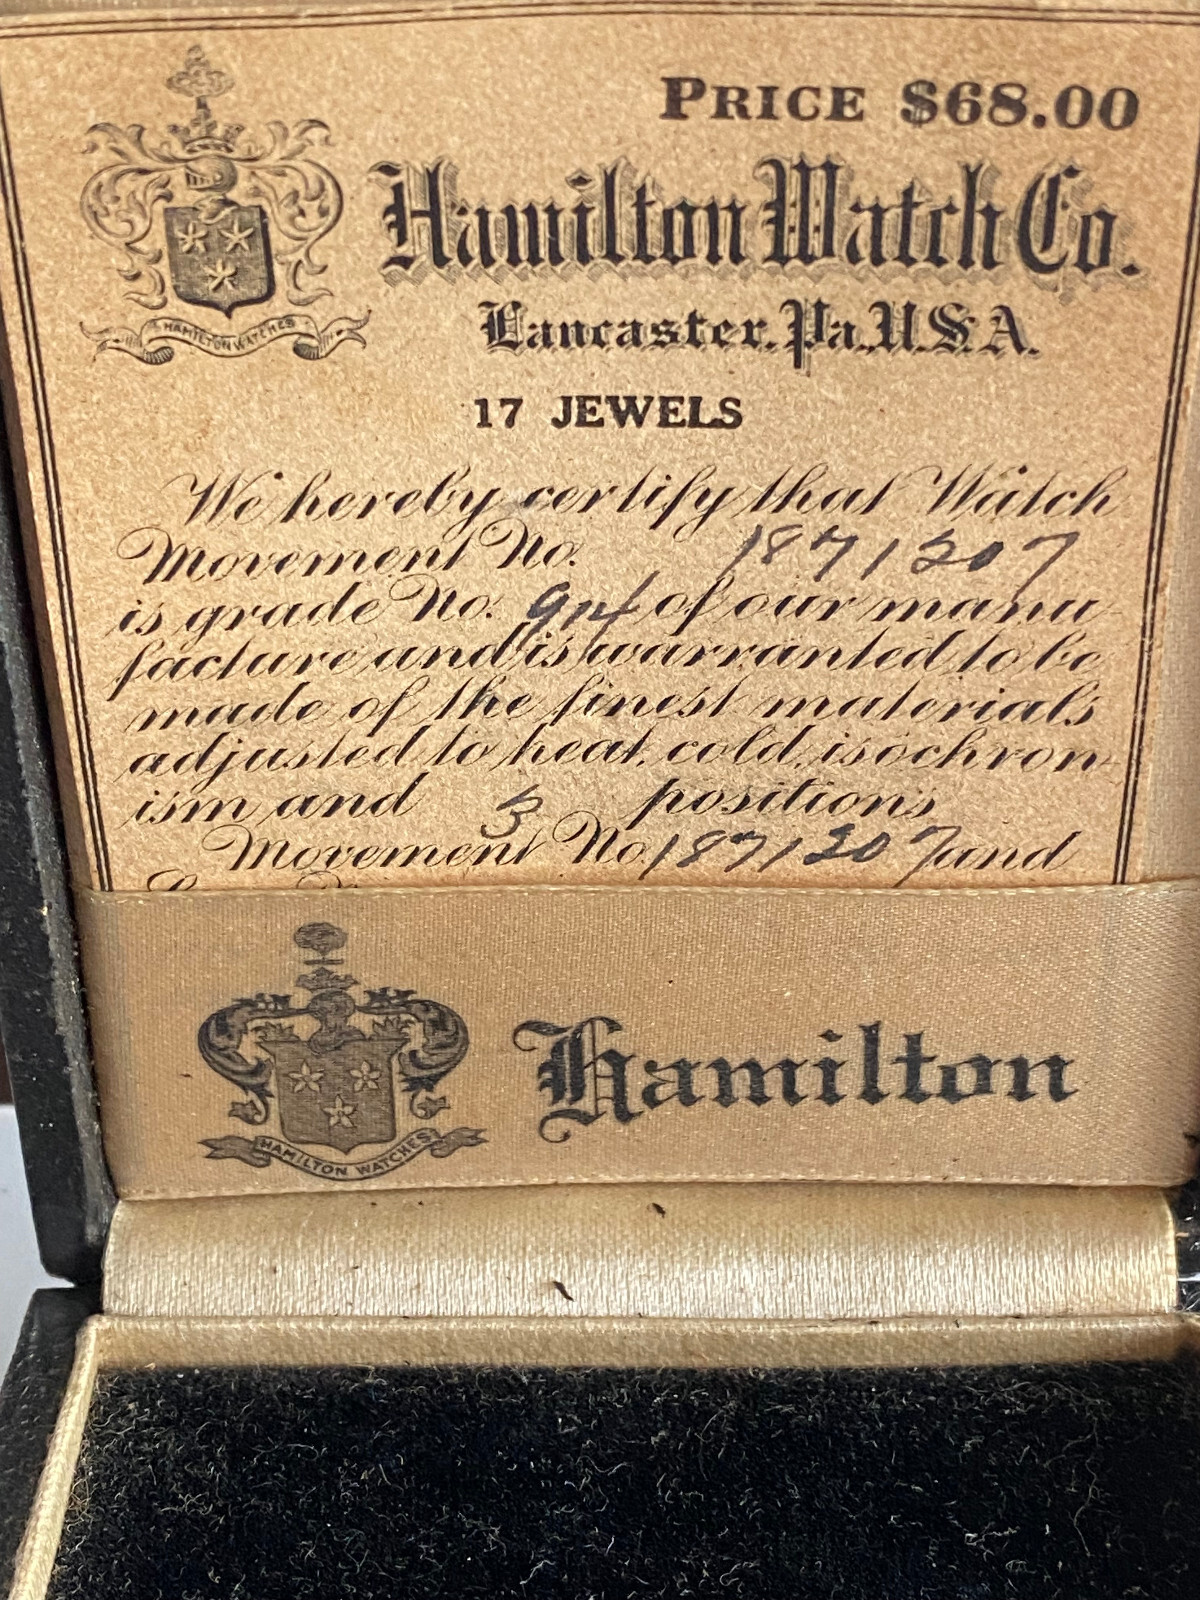 PRICE $68.00
Hamilton Watch Co.
HAMILTON WATCHES
Lancaster, Pa., U.S.A.
17 JEWELS
We hereby certify that Watch
Movement No. 1871207
is grade No. 914 of our manu-
facture and is warranted to be
made of the finest materials
adjusted to heat, cold, isochron-
ism and 3 positions
Movement No. 1871207 and
Hamilton
HAMILTON WATCHES